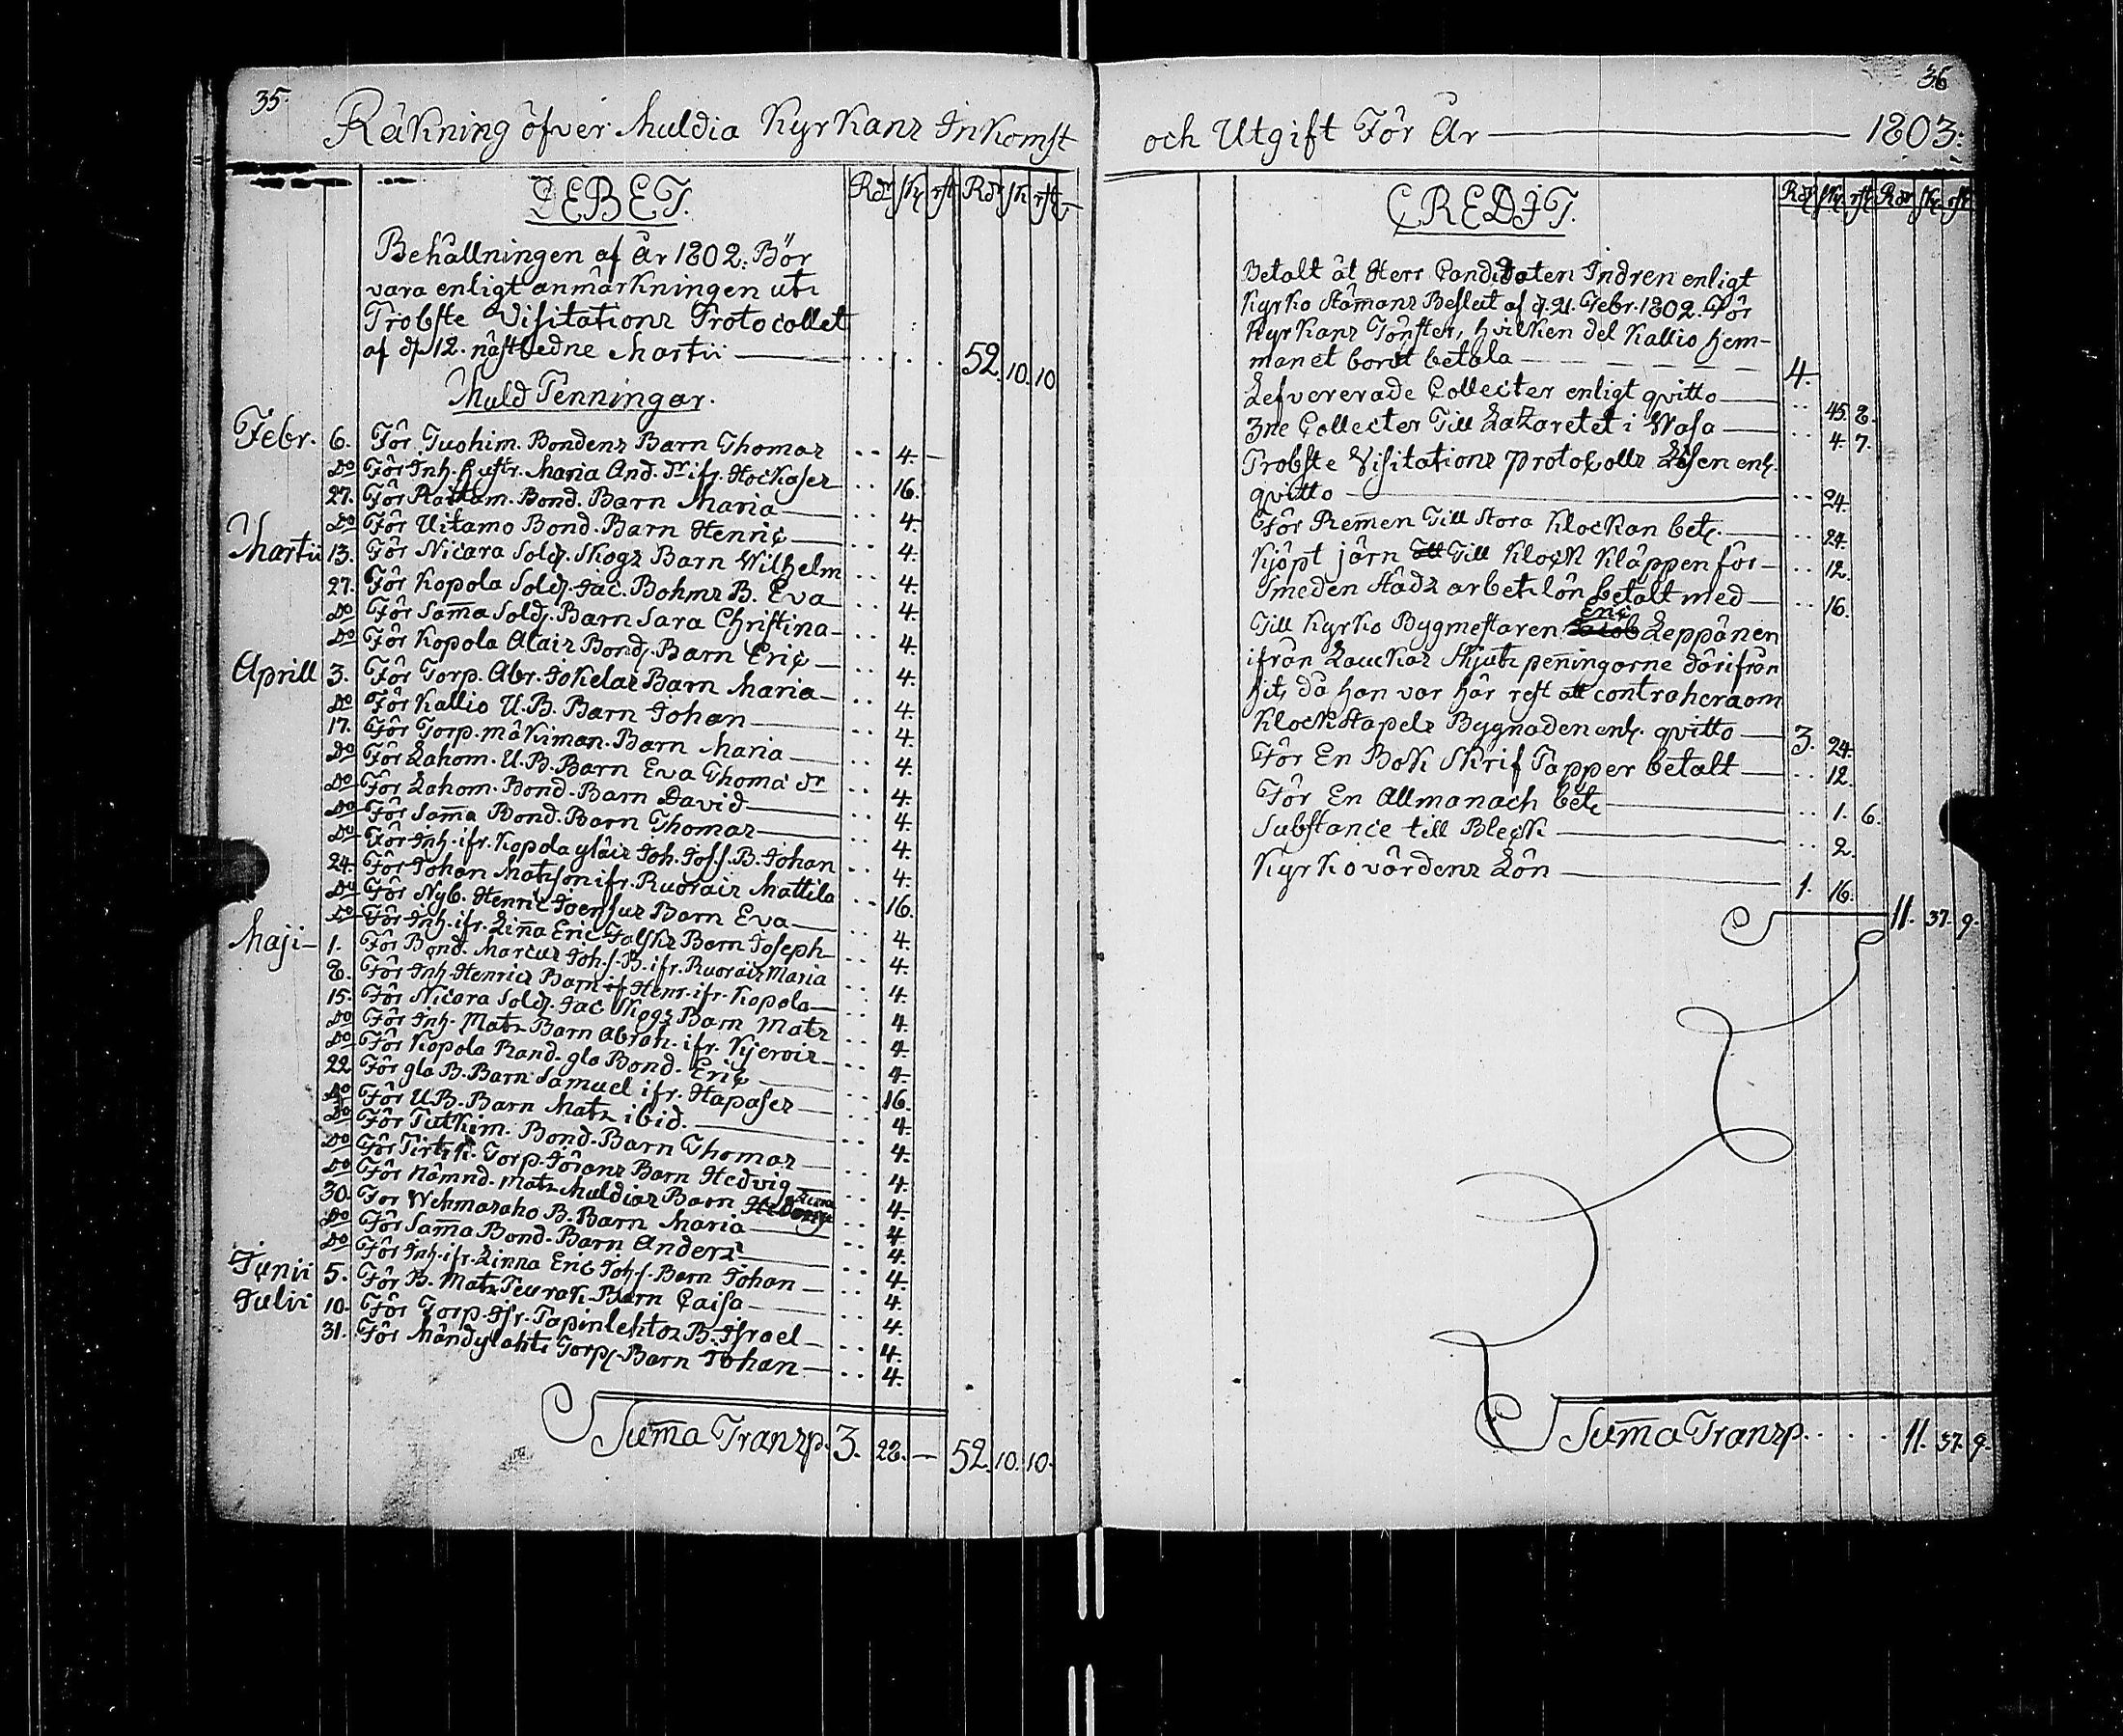 35.
Räkning öfver Muldia Kyrkans Inkomst
DEBET.
Rdr sk rst Rdr sk rst
Behållningen af År 1802: Bör
vara enligt anmärkningen uti
Probste Visitations Protocollet
af d. 12. nästledne Martii — 52. 10. 10
Muld Penningar.
Febr. 6. För Tuohim. Bondens Barn Thomas .. 4. —
Do För Inh. Hustr. Maria And. Dr ifr. Hockases .. 16.
27. För Raitam. Bond. Barn Maria — .. 4.
Do För Uitamo Bond. Barn Henric — .. 4.
Martii 13. För Nicara Sold. Skogs Barn Wilhelm .. 4.
27. För Kopola Sold. Jac. Bohms B. Eva .. 4.
Do För Samma Sold. Barn Sara Christina .. 4.
Do För Kopola Alais Bond. Barn Eric — .. 4.
Aprill 3. För Torp. Abr. Jokelas Barn Maria — .. 4.
Do För Kallio U. B. Barn Johan — .. 4.
17. För Torp. Mäkiman. Barn Maria — .. 4.
Do För Lahom. U. B. Barn Eva Thomä dr .. 4.
Do För Lahom. Bond. Barn David — .. 4.
Do För Samma Bond. Barn Thomas — .. 4.
Do För Inh. ifr. Kopola yläis Joh. Jos. s. B. Johan .. 4.
24. För Johan Matsson ifr. Ruorais Mattila .. 16.
Do För Nyb. Henric Joensus Barn Eva — .. 4.
Do För Inh. ifr. Linna Eric Barn Joseph .. 4.
Maji — 1. För Bond. Marcus Joh. s. B. ifr. Ruorais Maria .. 4.
8. För Inh. Henrics Barn Henr. ifr. Kopola — .. 4.
15. För Nicara Sold. Jac Skogs Barn Mats .. 4.
Do För Inh. Mats Barn Abrah. ifr. Kjerois — .. 4.
Do För Kopola Rand. gla Bond. Eric — .. 16.
22 För gla B. Barn Samuel ifr. Hapases — .. 4.
Do För U B. Barn Mats ibid. — .. 4.
Do För Tutkim. Bond. Barn Thomas — .. 4.
Do För Torp. Jörans Barn Hedvig — .. 4.
Do För Nämnd. Mats Muldias Barn .. 4.
30. För Wehmasaho B. Barn Maria — .. 4.
Do För Samma Bond. Barn Anders — .. 4.
Do För Inh. ifr. Linna Eric Joh. s. Barn Johan — .. 4.
Junii 5. För B. Mats Teurak. Barn Caisa — .. 4.
Julii 10. För Torp. Isr. Papinlehtos B. Israel — .. 4.
31. För Mändylahti Torp. Barn Johan — .. 4.
Summa Transp. 3. 28. — 52. 10. 10.
36
och Utgift För År — 1803:
CREDIT.
Rdr sk rst Rdr sk rst
Betalt åt Herr Candidaten Indren enligt
Kyrko Stämans Beslut af d. 21. Febr. 1802. För
Kyrkans Fönster, hvilken del Kallio hem-
manet bordt betala — 4.
Lefvererade Collecter enligt qvitto — .. 45. 8.
3ne Collecter Till Lazaretet i Wasa — .. 4. 7.
Probste Visitations protocolls Lösen enl.
qvitto — .. 24.
För Remen Till Stora Klockan bet. — .. 24.
Kjöpt järn Till Klock Kläppen för — .. 12.
Smeden Städs arbets lön betalt med — .. 16.
Till Kyrko Bygmestaren Eric Leppänen
ifrån Lauckas Skjuts penningarne därifrån
hit, då han var här rest att contrahera om
Klockstapels Bygnaden enl. qvitto — 3. 24.
För En Bok Skrif Papper betalt — .. 12.
För En Allmanach bet. — .. 1. 6.
Substance till Bleck — .. 2.
Kyrkovärdens Lön — 1. 16.
11. 37. 9.
Summa Transp. . . . . 11. 37. 9.